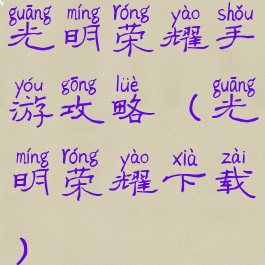 guāng míng róng yào shǒu
光明荣耀手
yóu gōng lüè guāng
游攻略(光
míng róng yào xià zài
明荣耀下载
)